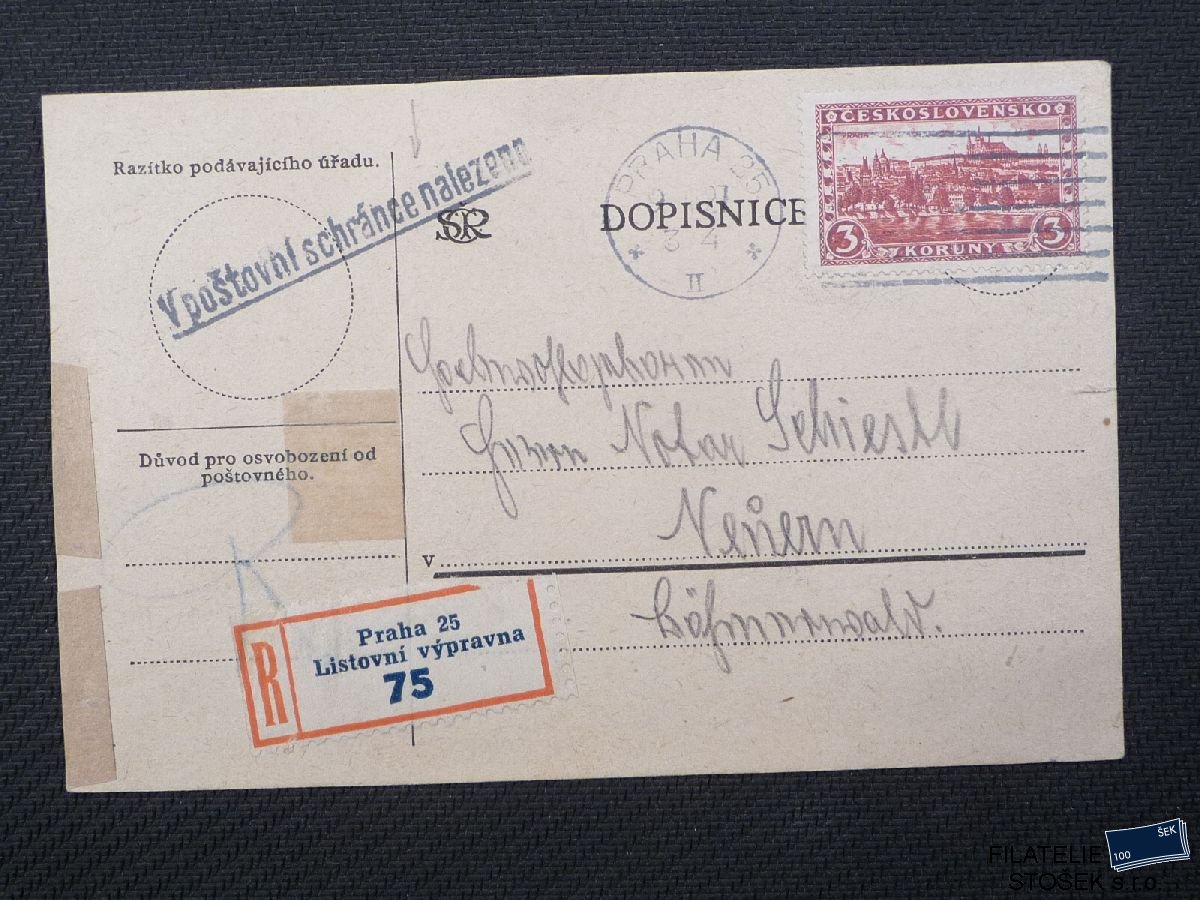 Razítko podávajícího úřadu.
V poštovní schránce nalezeno
ČSR
DOPISNICE
PRAHA 25
3 4
II
ČESKOSLOVENSKO
3 KORUNY 3
Důvod pro osvobození od
poštovného.
Notar Schiestl
v Neüern
Böhmerwald.
R
Praha 25
Listovní výpravna
75
100 ŠEK
FILATELIE
STOŠEK s.r.o.